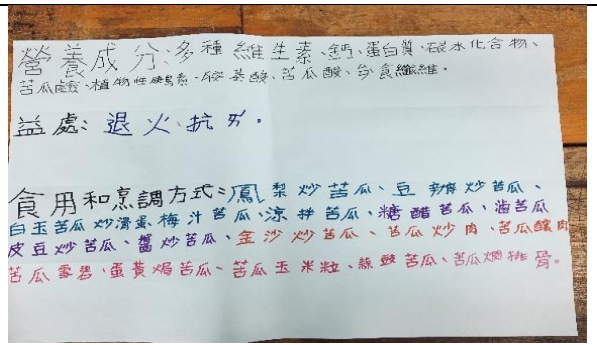 營養成分:多種維生素、鈣、蛋白質、碳水化合物、
苦瓜鹼、植物性胰島素、胺基酸、苦瓜酸、膳食纖維。
益處:退火、抗ㄞˊ。
食用和烹調方式:鳳梨炒苦瓜、豆瓣炒苦瓜、
白玉苦瓜炒滑蛋、梅汁苦瓜、涼拌苦瓜、糖醋苦瓜、滷苦瓜
皮豆炒苦瓜、醬炒苦瓜、金沙炒苦瓜、苦瓜炒肉、苦瓜釀肉
苦瓜雪碧、蛋黃焗苦瓜、苦瓜玉米粒、苦瓜、苦瓜燜排骨。